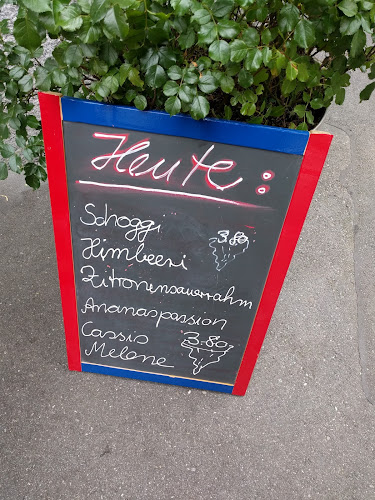 Heute:
Schoggi
Himbeeri 3.80
Zitronensauerrahm
Ananaspassion
Cassis 3.80
Melone